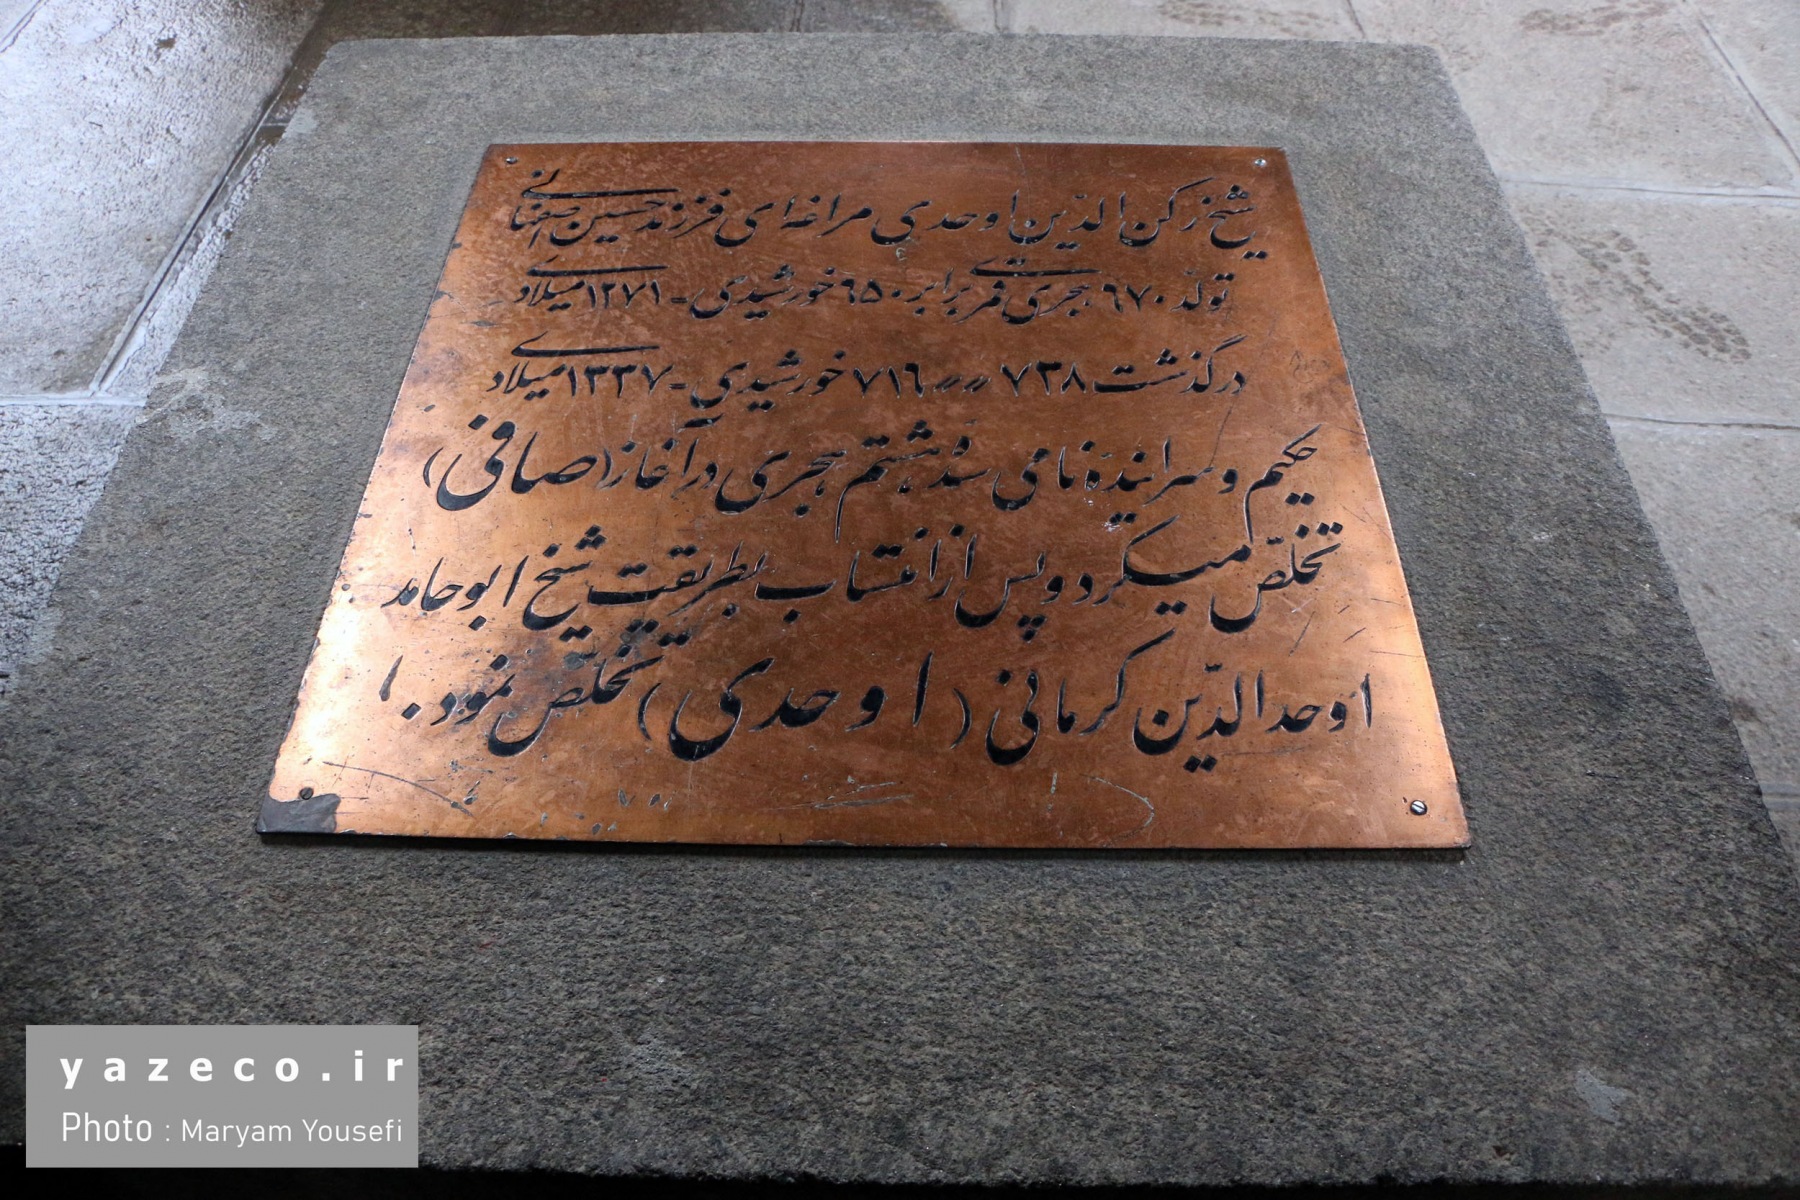 شیخ رکن الدّین اوحدی مراغه‌ای فرزند حسین اصفهانی
تولّد ۶۷۰ هجری قمری برابر ۶۵۰ خورشیدی - ۱۲۷۱ میلادی
درگذشت ۷۳۸ 〃 〃 ۷۱۶ خورشیدی - ۱۳۳۷ میلادی
حکیم و سرایندهٔ نامی سدهٔ هشتم هجری در آغاز (صافی)
تخلّص میکرد و پس از انتساب بطریقت شیخ ابوحامد
اوحدالدّین کرمانی (اوحدی) تخلّص نمود.
yazeco.ir
Photo : Maryam Yousefi